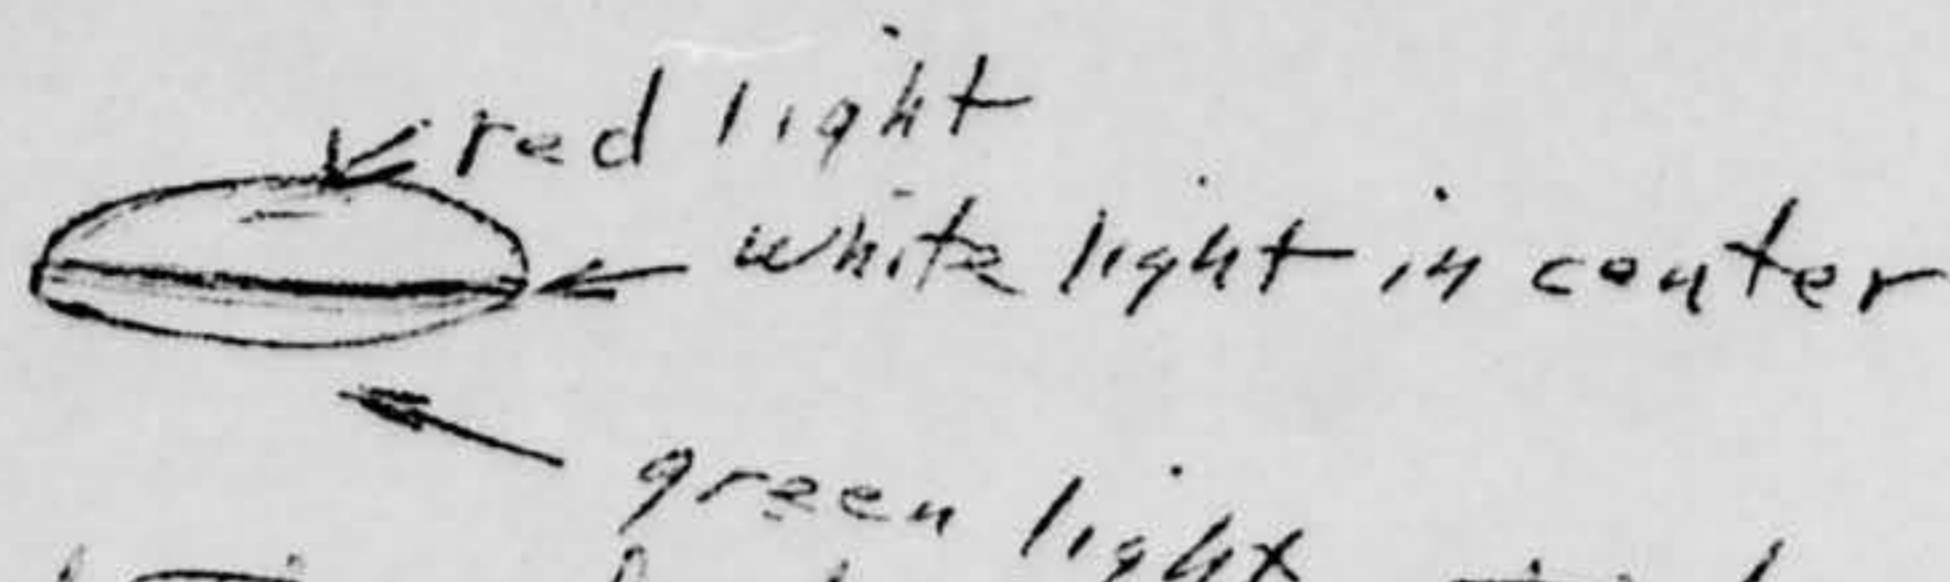 red light
white light in center
green light